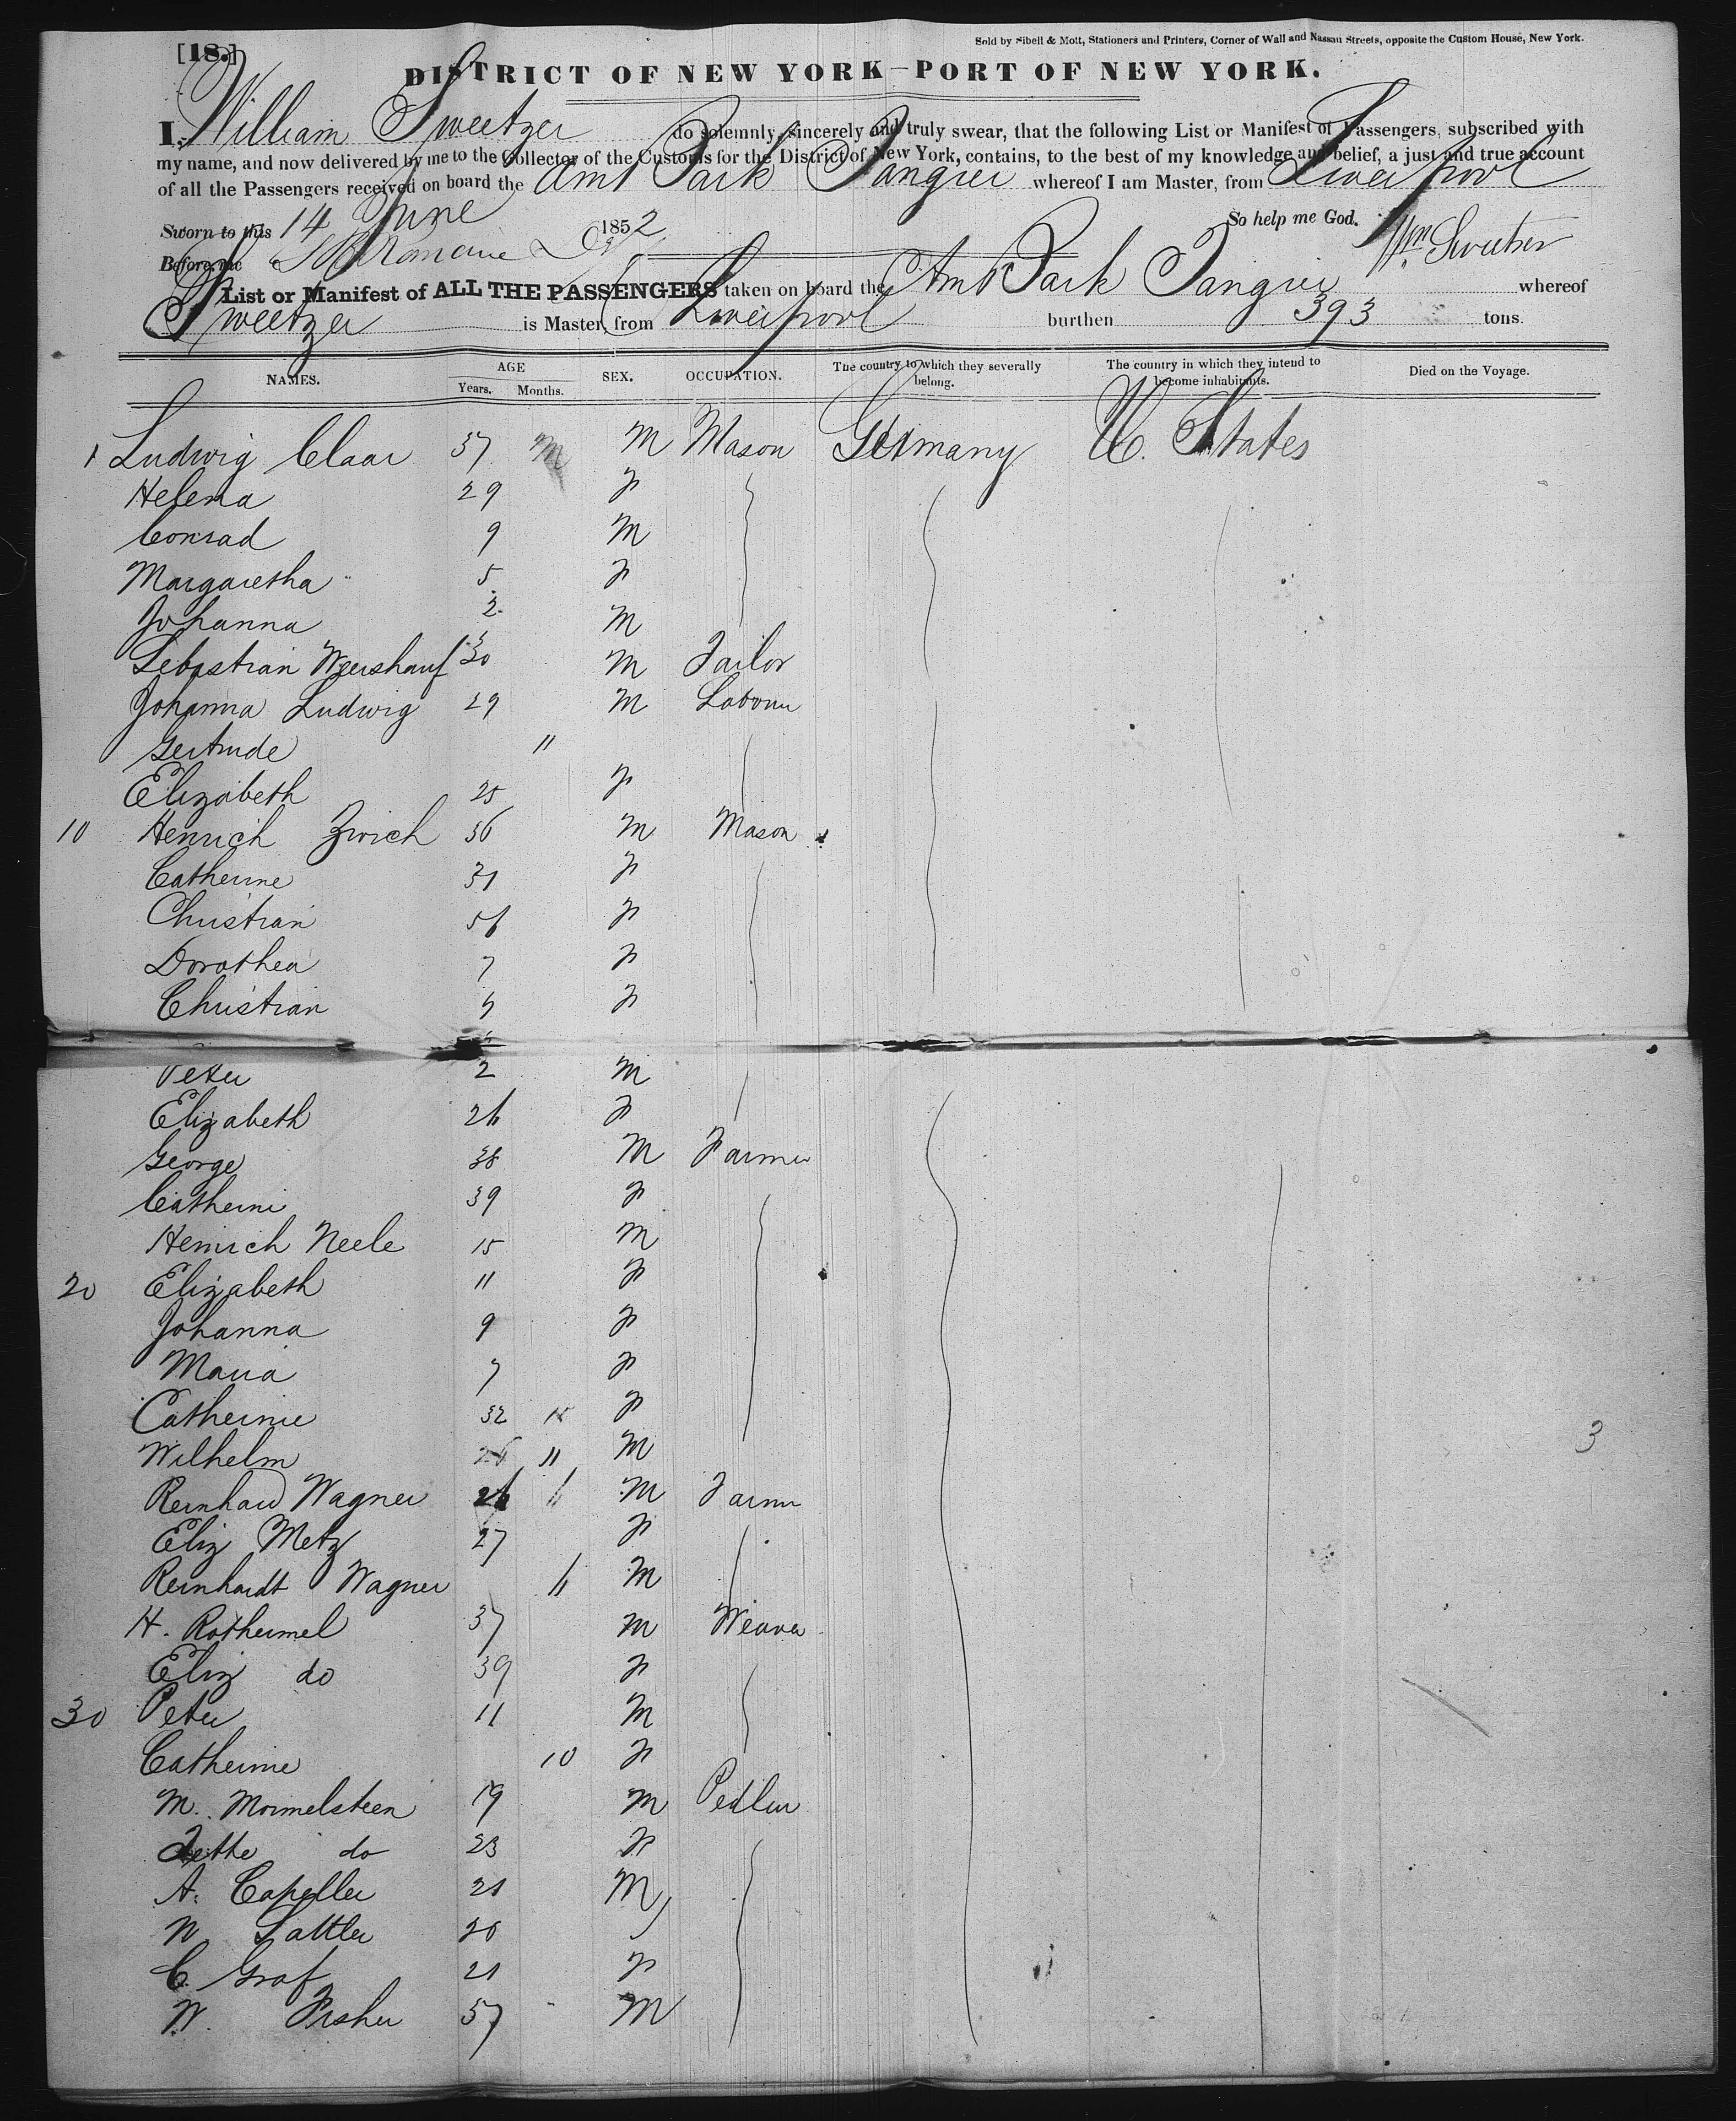 [18.]
Sold by Sibell & Mott, Stationers and Printers, Corner of Wall and Nassau Streets, opposite the Custom House, New York.
DISTRICT OF NEW YORK—PORT OF NEW YORK.
I, William Sweetzer do solemnly, sincerely and truly swear, that the following List or Manifest of Passengers, subscribed with
my name, and now delivered by me to the Collector of the Customs for the District of New York, contains, to the best of my knowledge and belief, a just and true account
of all the Passengers received on board the Am Bark Tangier whereof I am Master, from Liverpool
Sworn to this 14 June 1852 So help me God. Wm Sweetser
Before me Romaine
List or Manifest of ALL THE PASSENGERS taken on board the Am Bark Tangier whereof
Sweetzer is Master, from Liverpool burthen 393 tons.
NAMES. AGE Years. Months. SEX. OCCUPATION. The country to which they severally belong. The country in which they intend to become inhabitants. Died on the Voyage.
1 Ludwig Claar 37 M M Mason Germany U. States
Helena 29 F
Conrad 9 M
Margaretha 5 F
Johanna 2 M
Sebastian 30 M Tailor
Johanna Ludwig 29 M Labourer
Gertrude 11
Elizabeth 25 F
10 Henrich Zwich 36 M Mason
Catherine 31 F
Christian 56 F
Dorothea 7 F
Christian 5 F
Peter 2 M
Elizabeth 26 F
George 38 M Farmer
Catherine 39 F
Heinrich Neele 15 M
20 Elizabeth 11 F
Johanna 9 F
Maria 7 F
Catherine 32 F
Wilhelm 11 M
Reinhard Wagner 26 M Farmer
Eliz Metz 27 F
Reinhardt Wagner 6 M
H. Rothermel 37 M Weaver
Eliz do 39 F
30 Peter 11 M
Catherine 10 F
M. Mormelsteen 19 M Pedler
Jette do 23 F
A. Capeller 21 M
N Sattler 20
C. Graf 21 F
W. Fisher 57 M
3